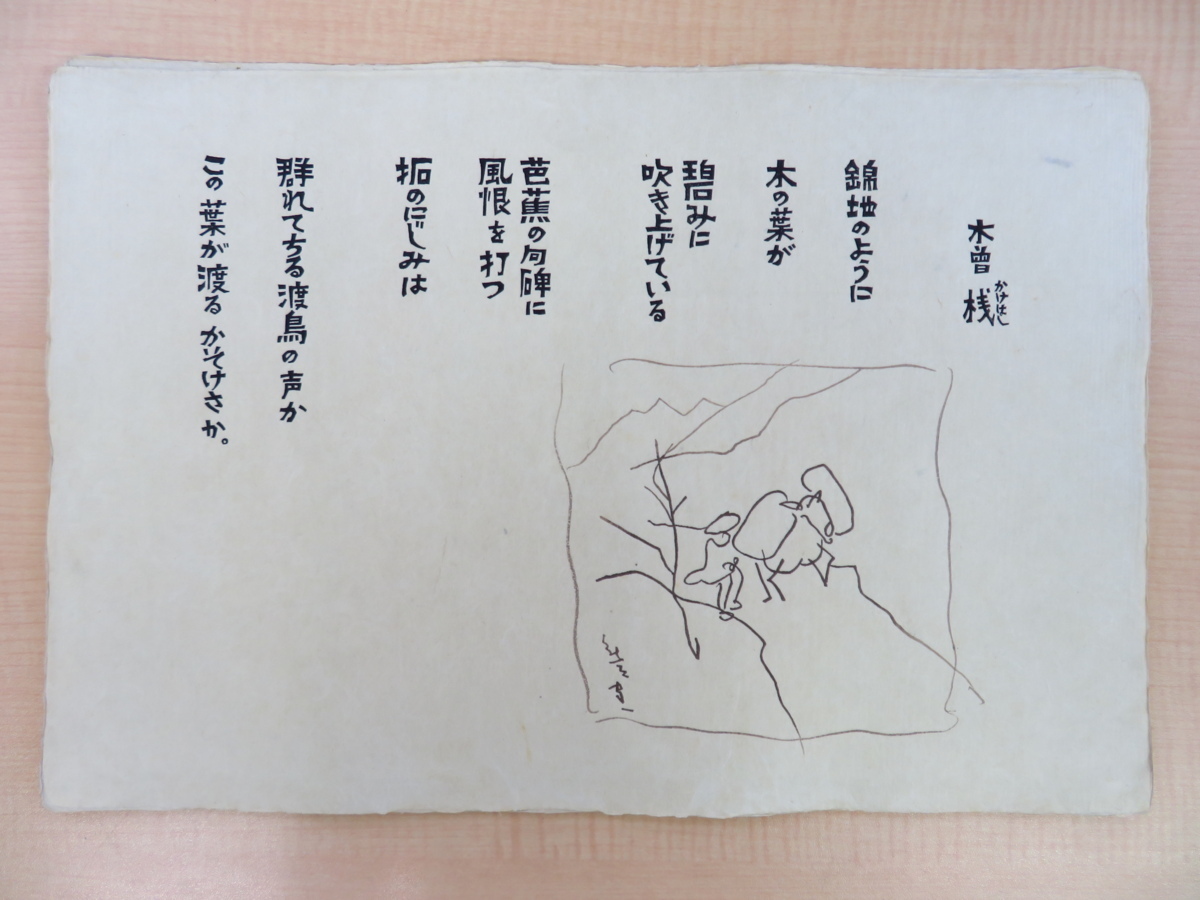 木曽 桟
かけはし
錦地のように
木の葉が
碧みに
吹き上げている
芭蕉の句碑に
風恨を打つ
拓のにじみは
群れてちる渡鳥の声か
この葉が渡る かそけさか。